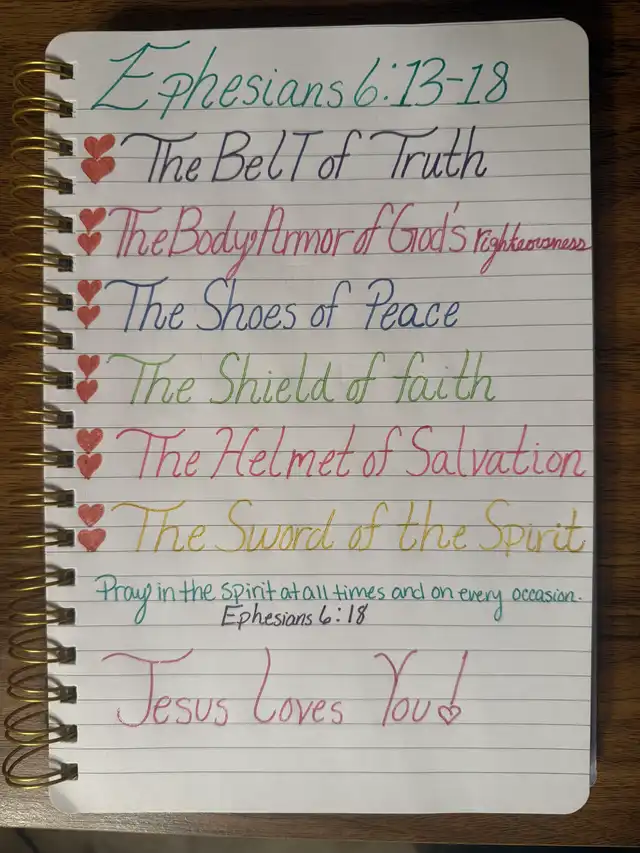 Ephesians 6:13-18
The Belt of Truth
The Body Armor of God's righteousness
The Shoes of Peace
The Shield of faith
The Helmet of Salvation
The Sword of the Spirit
Pray in the spirit at all times and on every occasion.
Ephesians 6:18
Jesus Loves You!